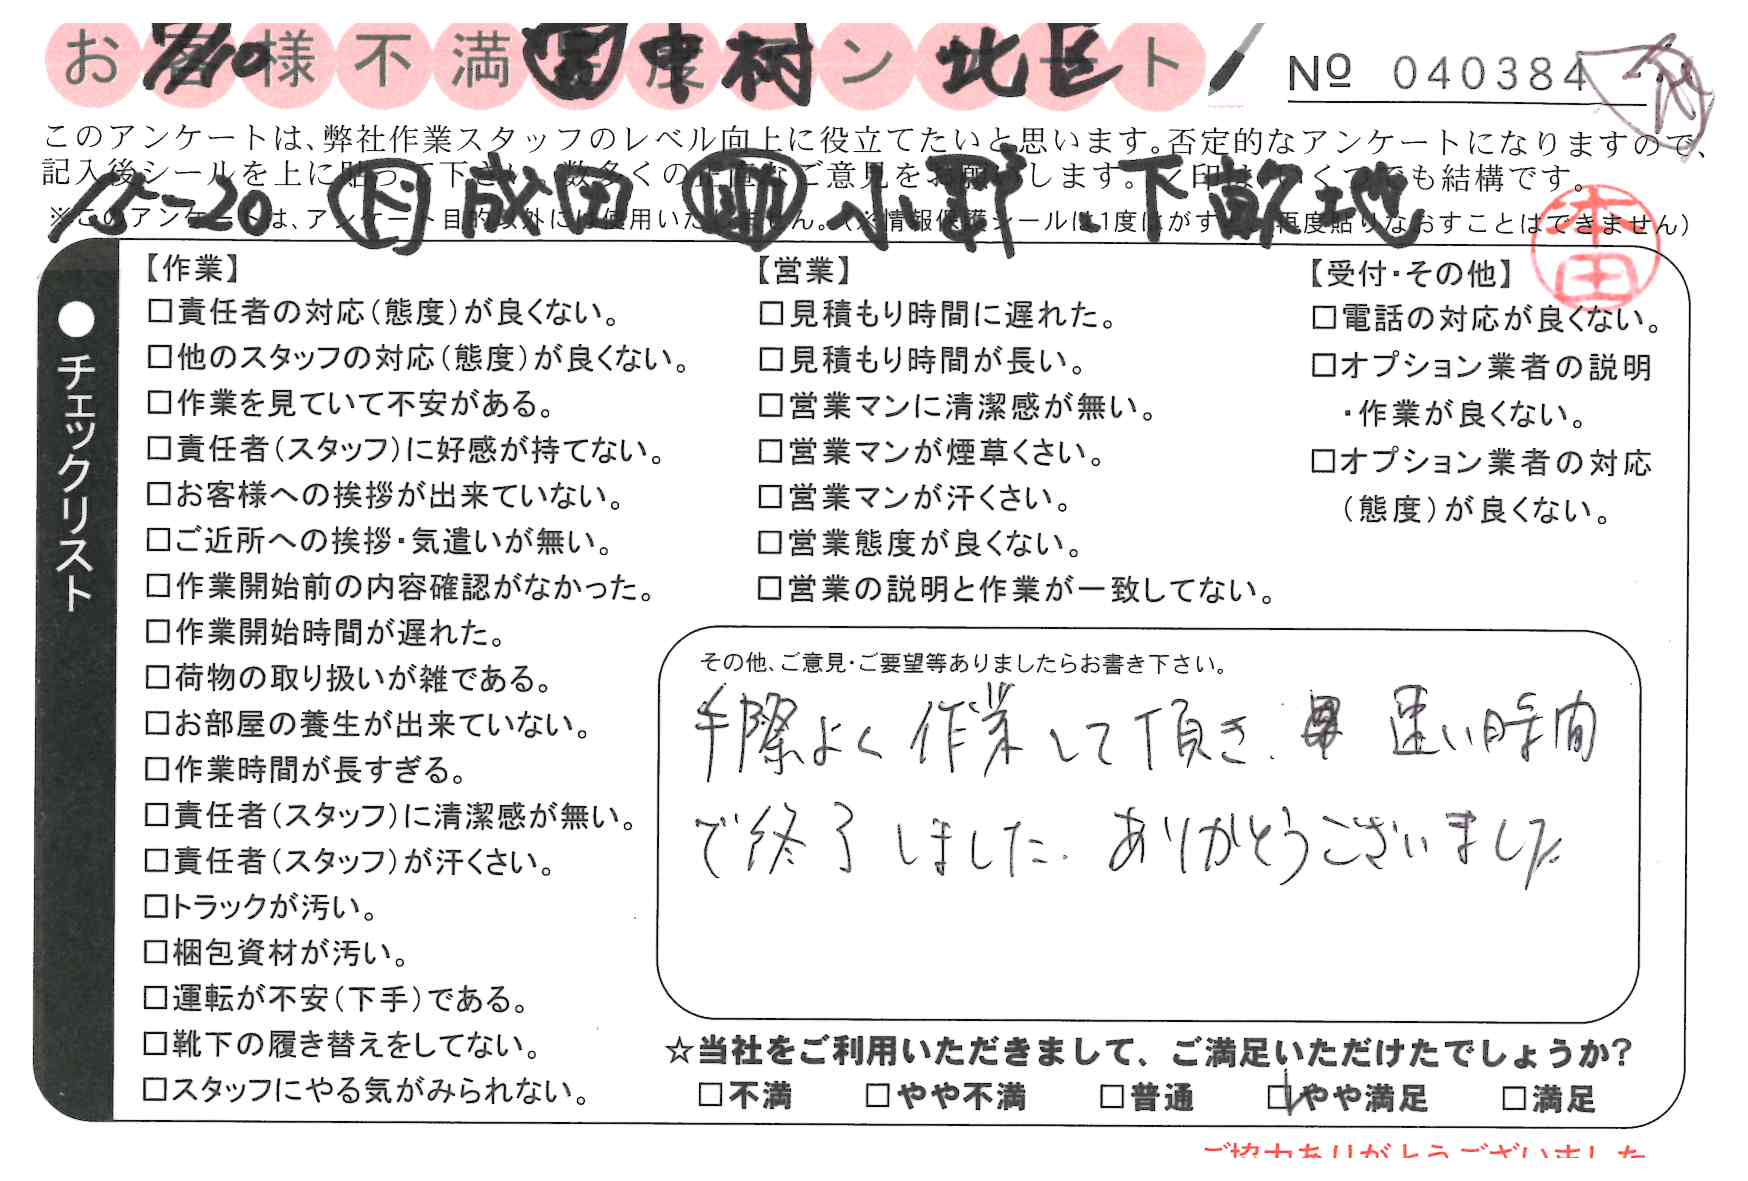 お客様不満足度アンケート
7/10 営 中村 北区
№ 040384
このアンケートは、弊社作業スタッフのレベル向上に役立てたいと思います。否定的なアンケートになりますので、
記入後シールを上に貼って下さい。数多くの正直なご意見をお願いします。✓印はいくつでも結構です。
15-20 ド 成田 助 小野 下畝地
※このアンケートは、アンケート目的以外には使用いたしません。(※情報保護シールは1度はがすと、再度貼りなおすことはできません)
本田
●チェックリスト
【作業】
□責任者の対応(態度)が良くない。
□他のスタッフの対応(態度)が良くない。
□作業を見ていて不安がある。
□責任者(スタッフ)に好感が持てない。
□お客様への挨拶が出来ていない。
□ご近所への挨拶・気遣いが無い。
□作業開始前の内容確認がなかった。
□作業開始時間が遅れた。
□荷物の取り扱いが雑である。
□お部屋の養生が出来ていない。
□作業時間が長すぎる。
□責任者(スタッフ)に清潔感が無い。
□責任者(スタッフ)が汗くさい。
□トラックが汚い。
□梱包資材が汚い。
□運転が不安(下手)である。
□靴下の履き替えをしてない。
□スタッフにやる気がみられない。
【営業】
□見積もり時間に遅れた。
□見積もり時間が長い。
□営業マンに清潔感が無い。
□営業マンが煙草くさい。
□営業マンが汗くさい。
□営業態度が良くない。
□営業の説明と作業が一致してない。
【受付・その他】
□電話の対応が良くない。
□オプション業者の説明
・作業が良くない。
□オプション業者の対応
(態度)が良くない。
その他、ご意見・ご要望等ありましたらお書き下さい。
手際よく作業して頂き、速い時間
で終了しました。ありがとうございました
☆当社をご利用いただきまして、ご満足いただけたでしょうか?
□不満 □やや不満 □普通 ☑やや満足 □満足
ご協力ありがとうございました